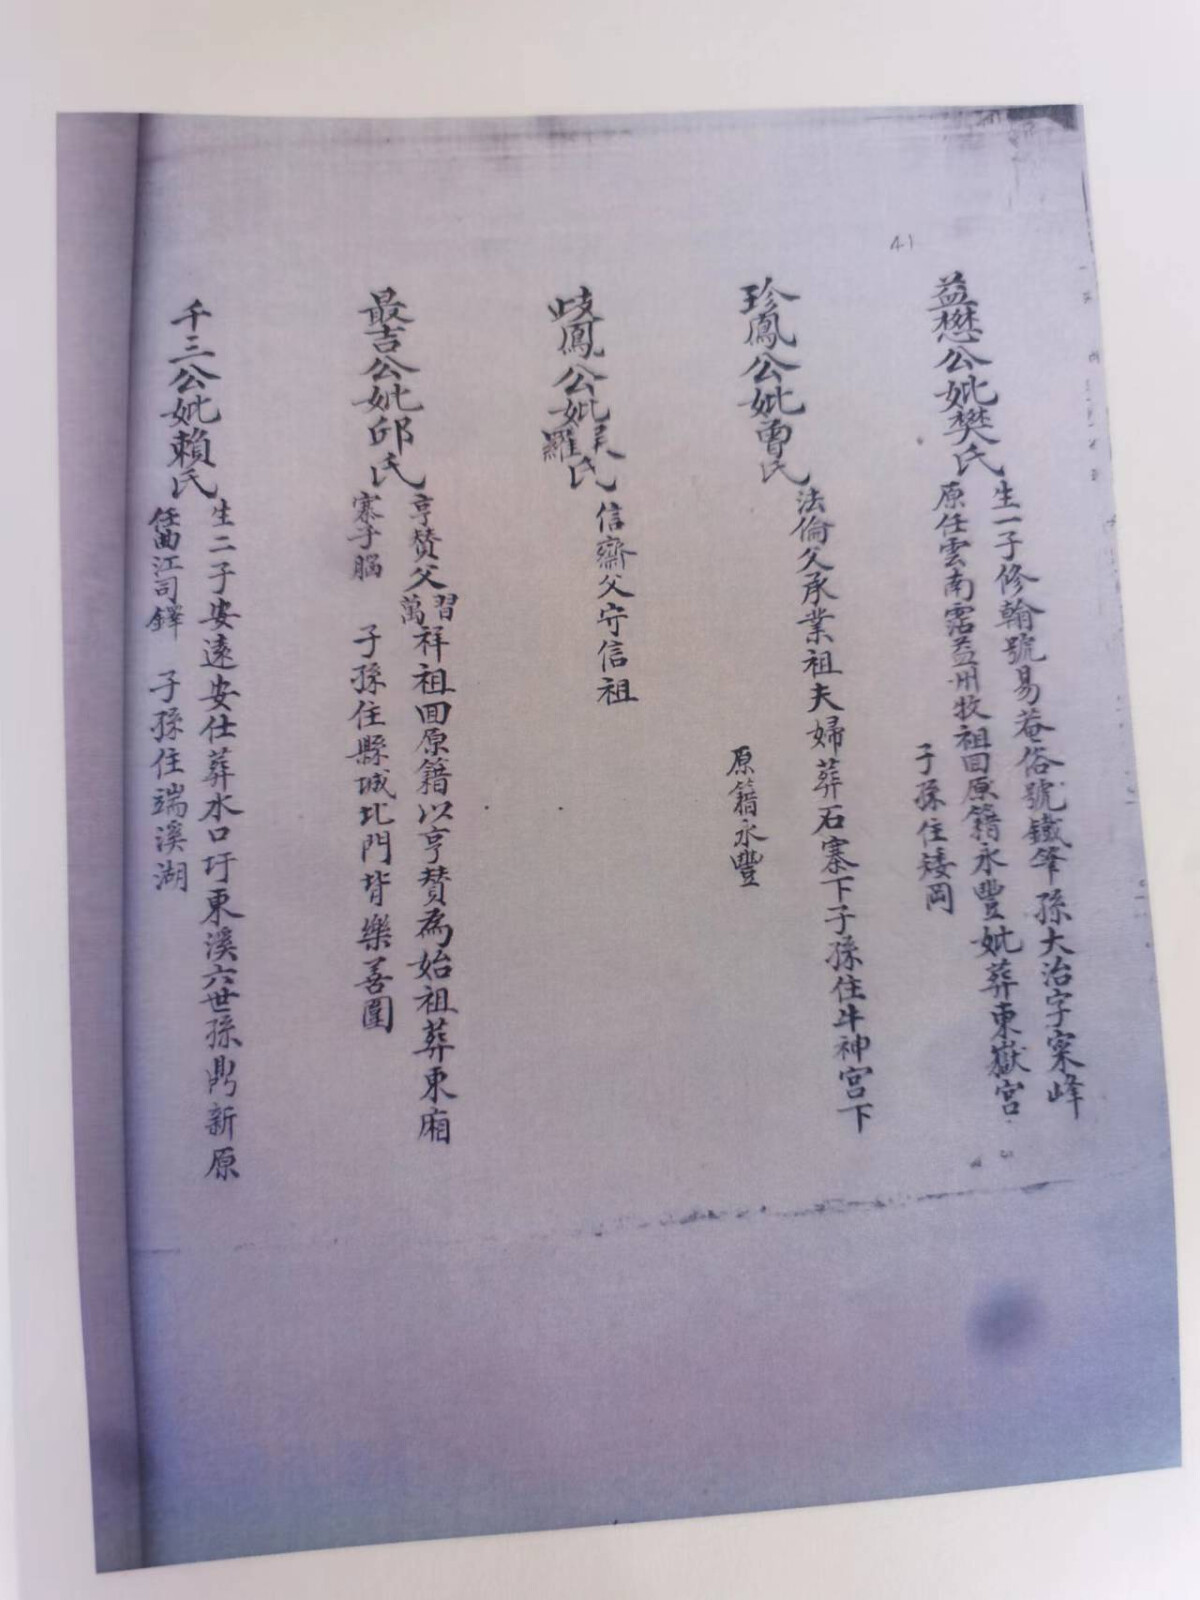 41
益懋公妣樊氏
生一子修翰號易菴俗號鐵筆孫大治字寀峰
原任雲南霑益州牧祖回原籍永豐妣葬東嶽宮
子孫住矮岡
珍鳳公妣曾氏
法倫父承業祖夫婦葬石寨下子孫住牛神宮下
原籍永豐
歧鳳公妣吴羅氏
信齋父守信祖
最吉公妣邱氏
亨贊父習萬祥祖回原籍以亨贊為始祖葬東廂
寨子腦 子孫住縣城北門背樂善圍
千三公妣賴氏
生二子安遠安仕葬水口圩東溪六世孫鼎新原
任曲江司鐸 子孫住端溪湖